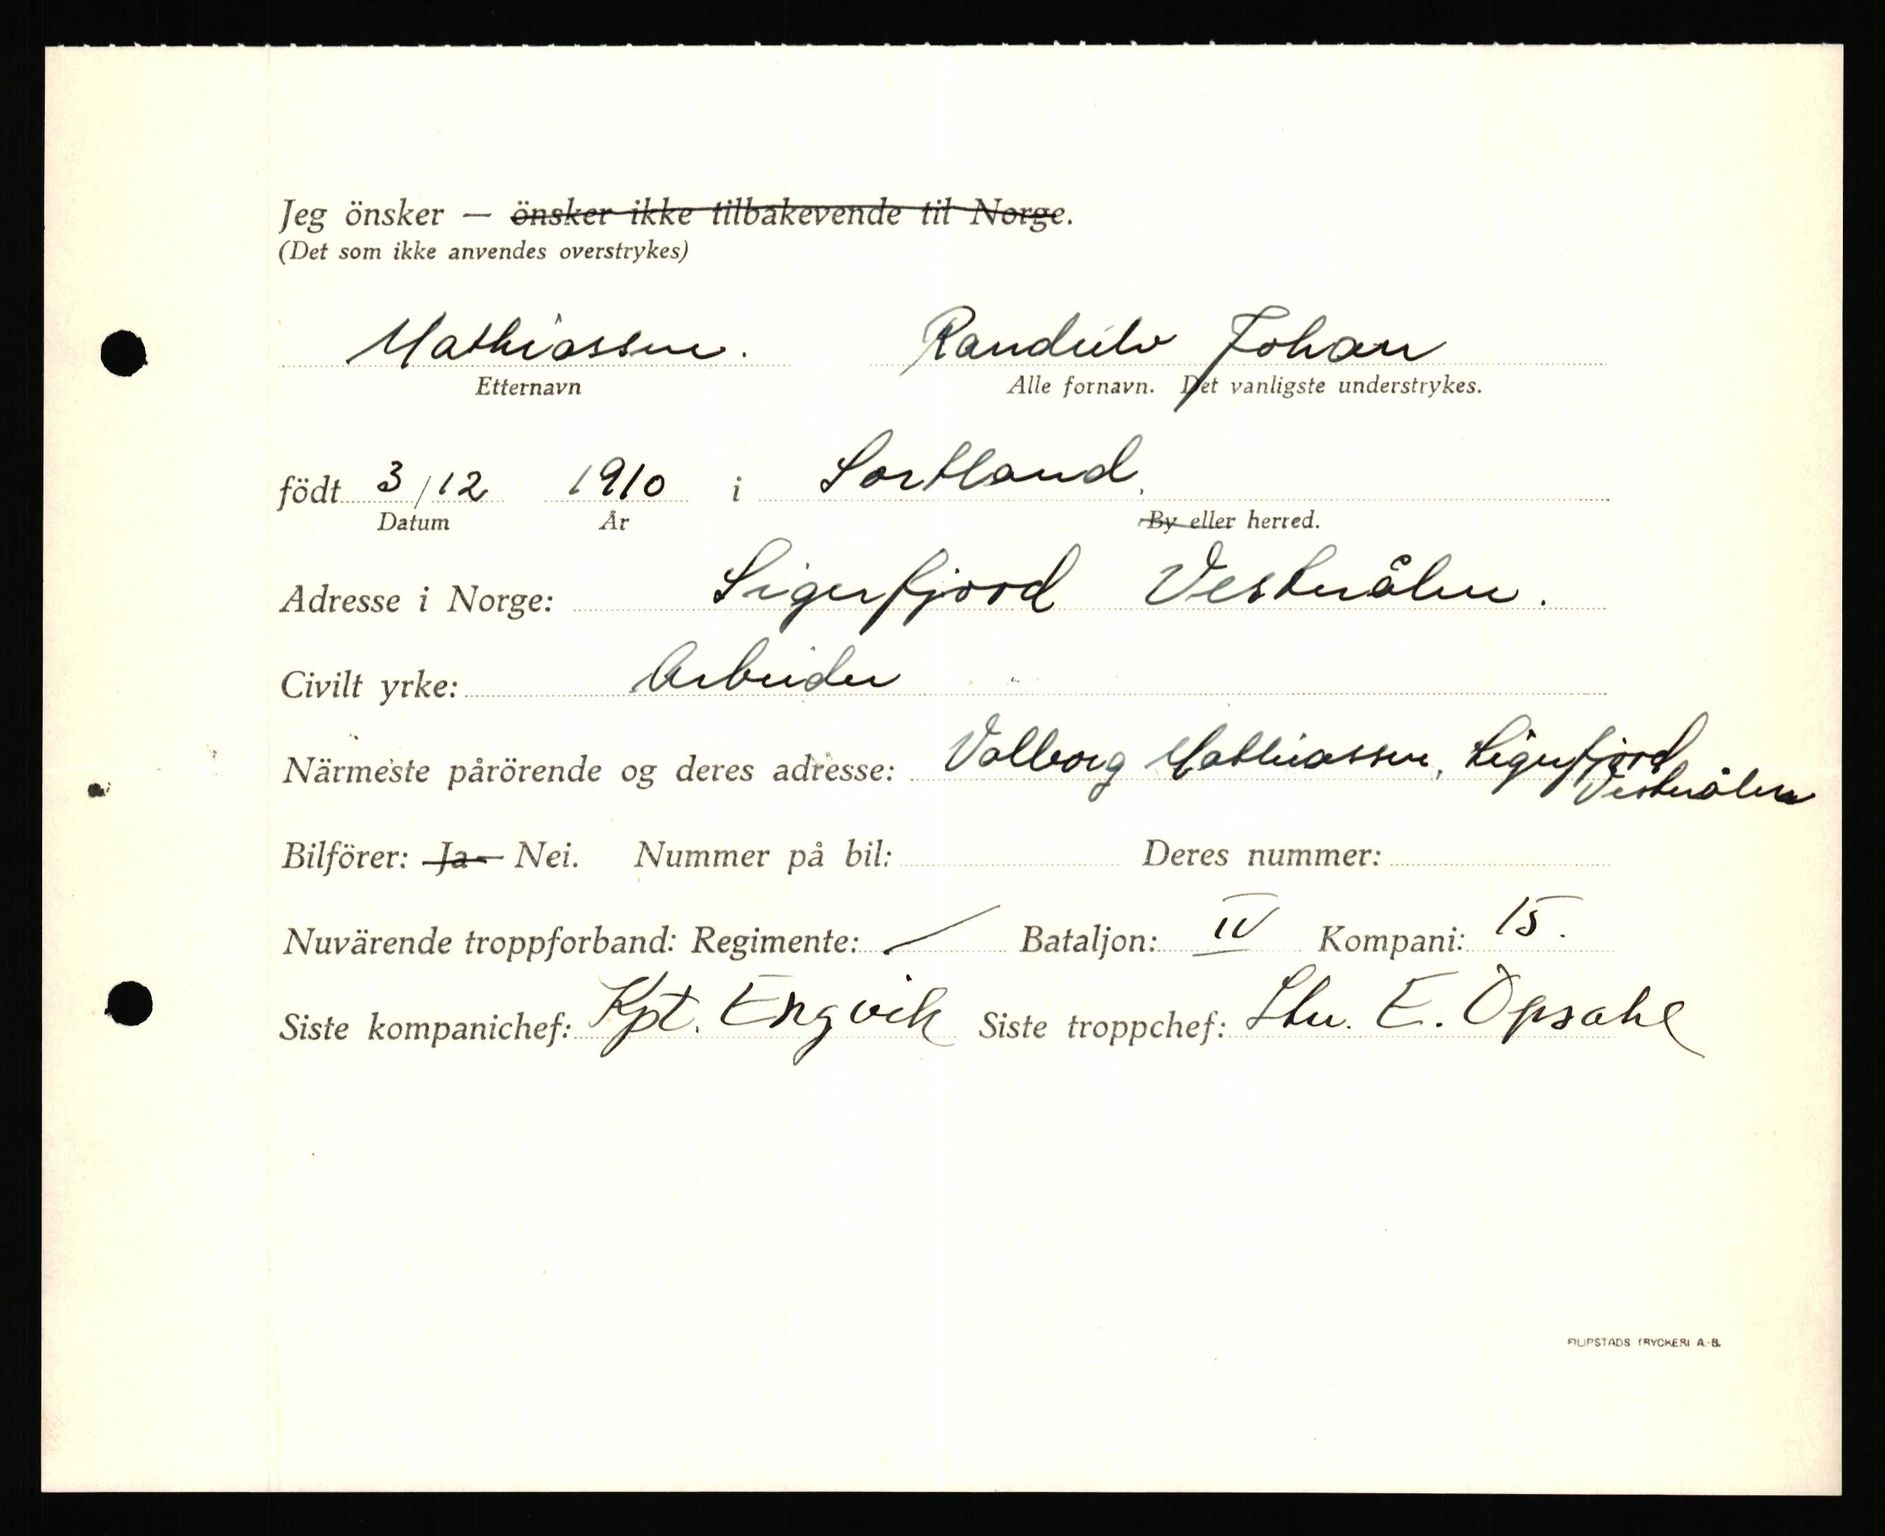 Jeg önsker — önsker ikke tilbakevende til Norge.
(Det som ikke anvendes overstrykes)
Mathiassen. Randulv Johan
Etternavn Alle fornavn. Det vanligste understrykes.
födt 3/12 1910 i Sortland.
Datum År By eller herred.
Adresse i Norge: Sigerfjord Vesterålen.
Civilt yrke: Arbeider
Närmeste pårörende og deres adresse: Valborg Mathiassen, Sigerfjord
Vesterålen
Bilförer: Ja Nei. Nummer på bil: Deres nummer:
Nuvärende troppforband: Regimente: / Bataljon: IV Kompani: 15.
Siste kompanichef: Kpt. Engvik Siste troppchef: E. Opsahl
FILIPSTADS TRYCKERI A.-B.